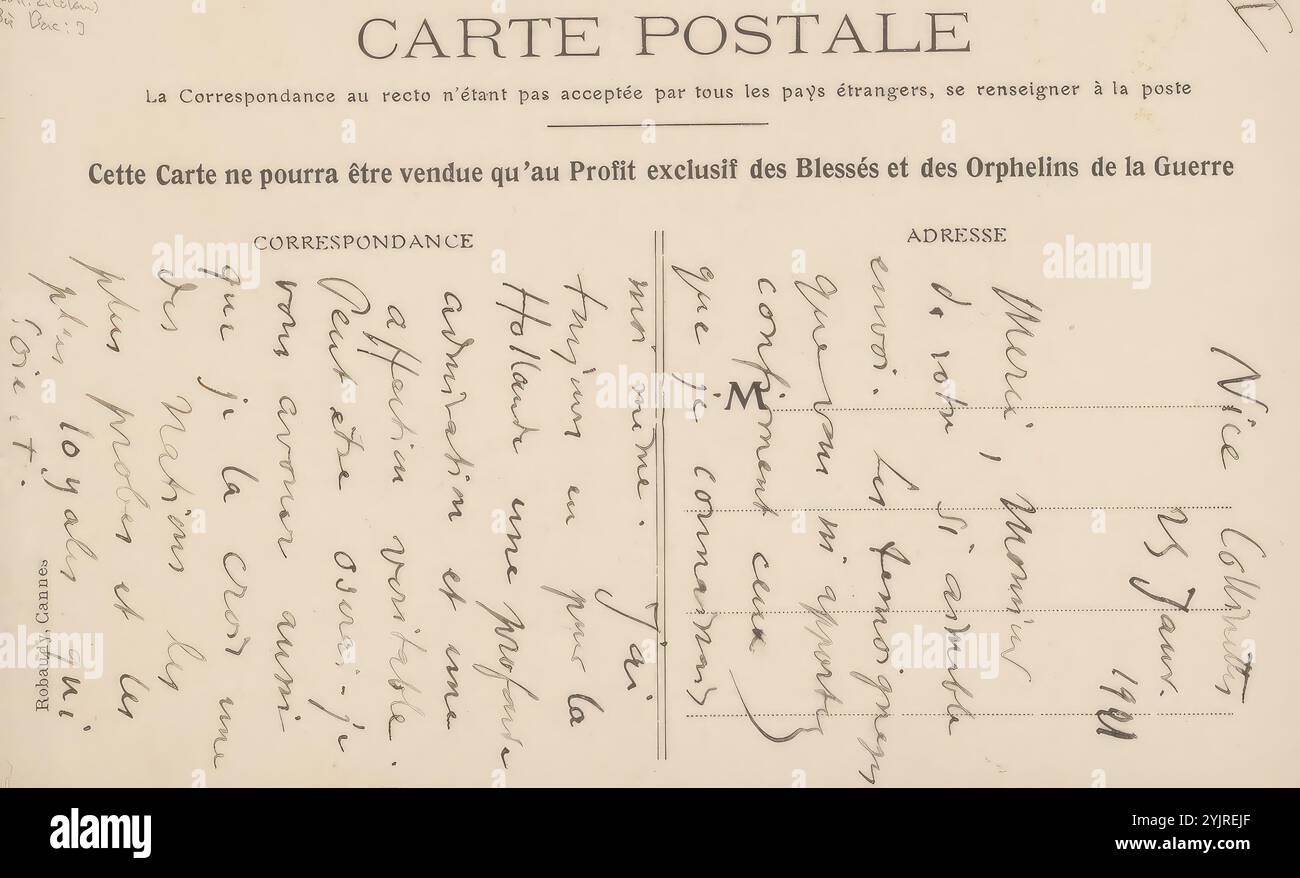 CARTE POSTALE
La Correspondance au recto n'étant pas acceptée par tous les pays étrangers, se renseigner à la poste
Cette Carte ne pourra être vendue qu'au Profit exclusif des Blessés et des Orphelins de la Guerre
CORRESPONDANCE
ADRESSE
M
Robaudy, Cannes
Nice
25 Janv.
Merci, Monsieur
de votre si aimable
envoi. Les temoignages
que vous m'apportez
confirment ceux
que je connaissais
moi même. J'ai
toujours eu pour la
Hollande une profonde
admiration et une
affection veritable.
Peut être oserai-je
vous avouer aussi
que je la crois une
des nations les
plus probes et les
plus loyales qui
soient.
alamy
Image ID: 2YJREJF
www.alamy.com